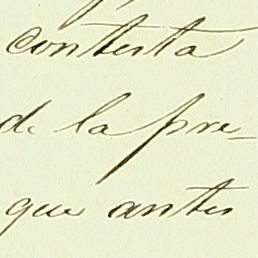 contesta
de la pre-
que antes